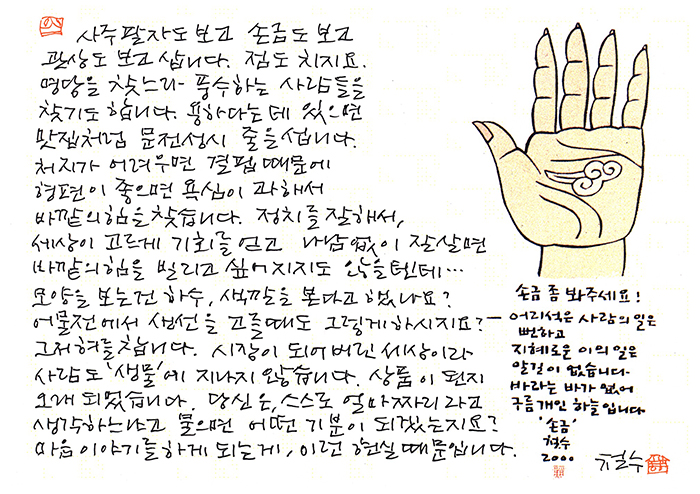 사주팔자도 보고 손금도 보고
관상도 보고 삽니다. 점도 치지요.
명당을 찾느라 풍수하는 사람들을
찾기도 합니다. 용하다는 데 있으면
맛집처럼 문전성시 줄을 섭니다.
처지가 어려우면 결핍 때문에
형편이 좋으면 욕심이 과해서
바깥의 힘을 찾습니다. 정치를 잘해서,
세상이 고르게 기회를 얻고 나눔없이 잘살면
바깥의 힘을 빌리고 싶어지지도 않을텐데…
모양을 보는건 하수, 색깔을 본다고 했나요?
어물전에서 생선을 고를때도 그렇게 하시지요? —
그저 혀를 찹니다. 시장이 되어버린 세상이라
사람도 '생물'에 지나지 않습니다. 상품이 된지
오래 되었습니다. 당신은, 스스로 얼마짜리라고
생각하느냐고 물으면 어떤 기분이 되겠는지요?
마음 이야기를 하게 되는게, 이런 현실 때문입니다.
손금 좀 봐주세요!
어리석은 사람의 일은
뻔하고
지혜로운 이의 일은
알길이 없습니다
바라는 바가 없어
구름 개인 하늘입니다
'손금'
철수
2000
철수